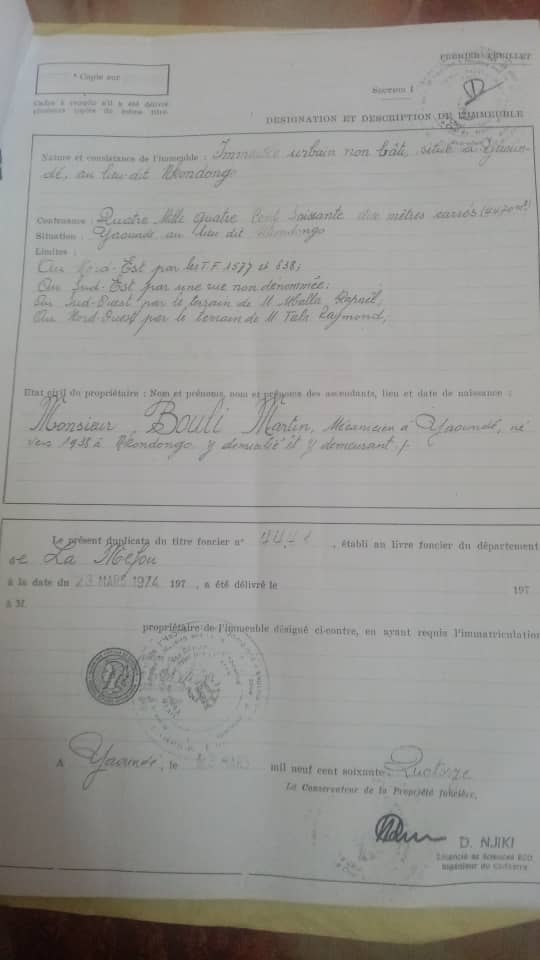 PREMIER FEUILLET
* Copie sur
Section I
Cadre à remplir s'il a été délivré
plusieurs copies du même titre.
DESIGNATION ET DESCRIPTION DE L'IMMEUBLE
Nature et consistance de l'immeuble : Immeuble urbain non bâti, situé à Yaoun-
dé, au lieu dit Nkondongo
Contenance : Quatre Mille Quatre Cent Soixante dix mètres carrés (4470 m²)
Situation : Yaoundé au lieu dit Nkondongo
Limites :
Au Nord-Est par les T.F 1577 et 838;
Au Sud-Est par une rue non dénommée;
Au Sud-Ouest par le terrain de M. Raphaël;
Au Nord-Ouest par le terrain de M. Raymond,
Etat civil du propriétaire : Nom et prénoms, nom et prénoms des ascendants, lieu et date de naissance :
Monsieur Bouli Martin, Mécanicien à Yaoundé, né
vers 1938 à Nkondongo y domicilié et y demeurant
Le présent duplicata du titre foncier n° , établi au livre foncier du département
de La Mefou
à la date du 23 MARS 1974 197 , a été délivré le 197
à M.
propriétaire de l'immeuble désigné ci-contre, en ayant requis l'immatriculation
A Yaoundé, le MARS mil neuf cent soixante Quatorze
Le Conservateur de la Propriété foncière,
D. NJIKI
Licencié ès Sciences ECO
Ingénieur du Cadastre